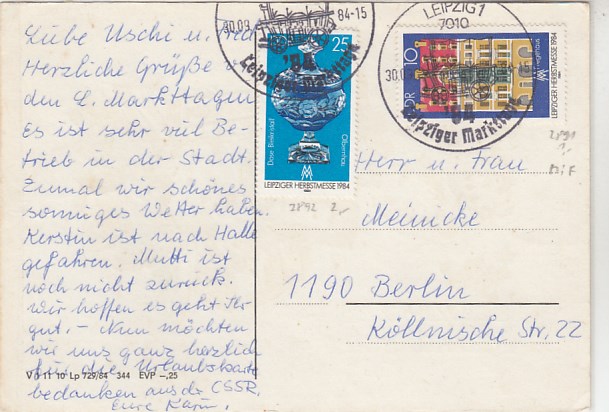 Liebe Uschi u.
Herzliche Grüße v.
den L. Markttagen
Es ist sehr viel Be-
trieb in der Stadt.
Zumal wir schönes
sonniges Wetter haben.
Kerstin ist nach Halle
gefahren. Mutti ist
noch nicht zurück.
Wir hoffen es geht Ihr
gut. – Nun möchten
wir uns ganz herzlich
für die Urlaubskarte
bedanken aus der CSSR.
Eure Karin.
V 11 10 Lp 729/84 344 EVP –,25
30.08. 84-15
'84
Leipziger Markttage
DDR 25
Dose Bleikristall
Olbernhau
LEIPZIGER HERBSTMESSE 1984
2892 2,-
LEIPZIG 1
7010
30.0
'84
Leipziger Markttage
DDR 10
LEIPZIGER HERBSTMESSE 1984
2891
1,-
MiF
Herrn u. Frau
Meinicke
1190 Berlin
Köllnische Str. 22